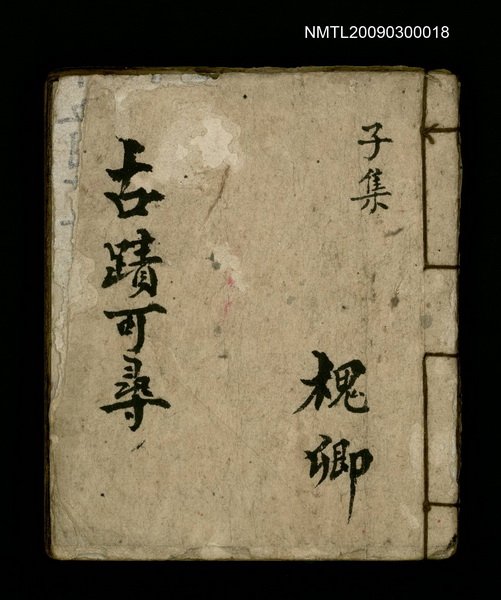 NMTL20090300018
子集
槐卿
古蹟可尋